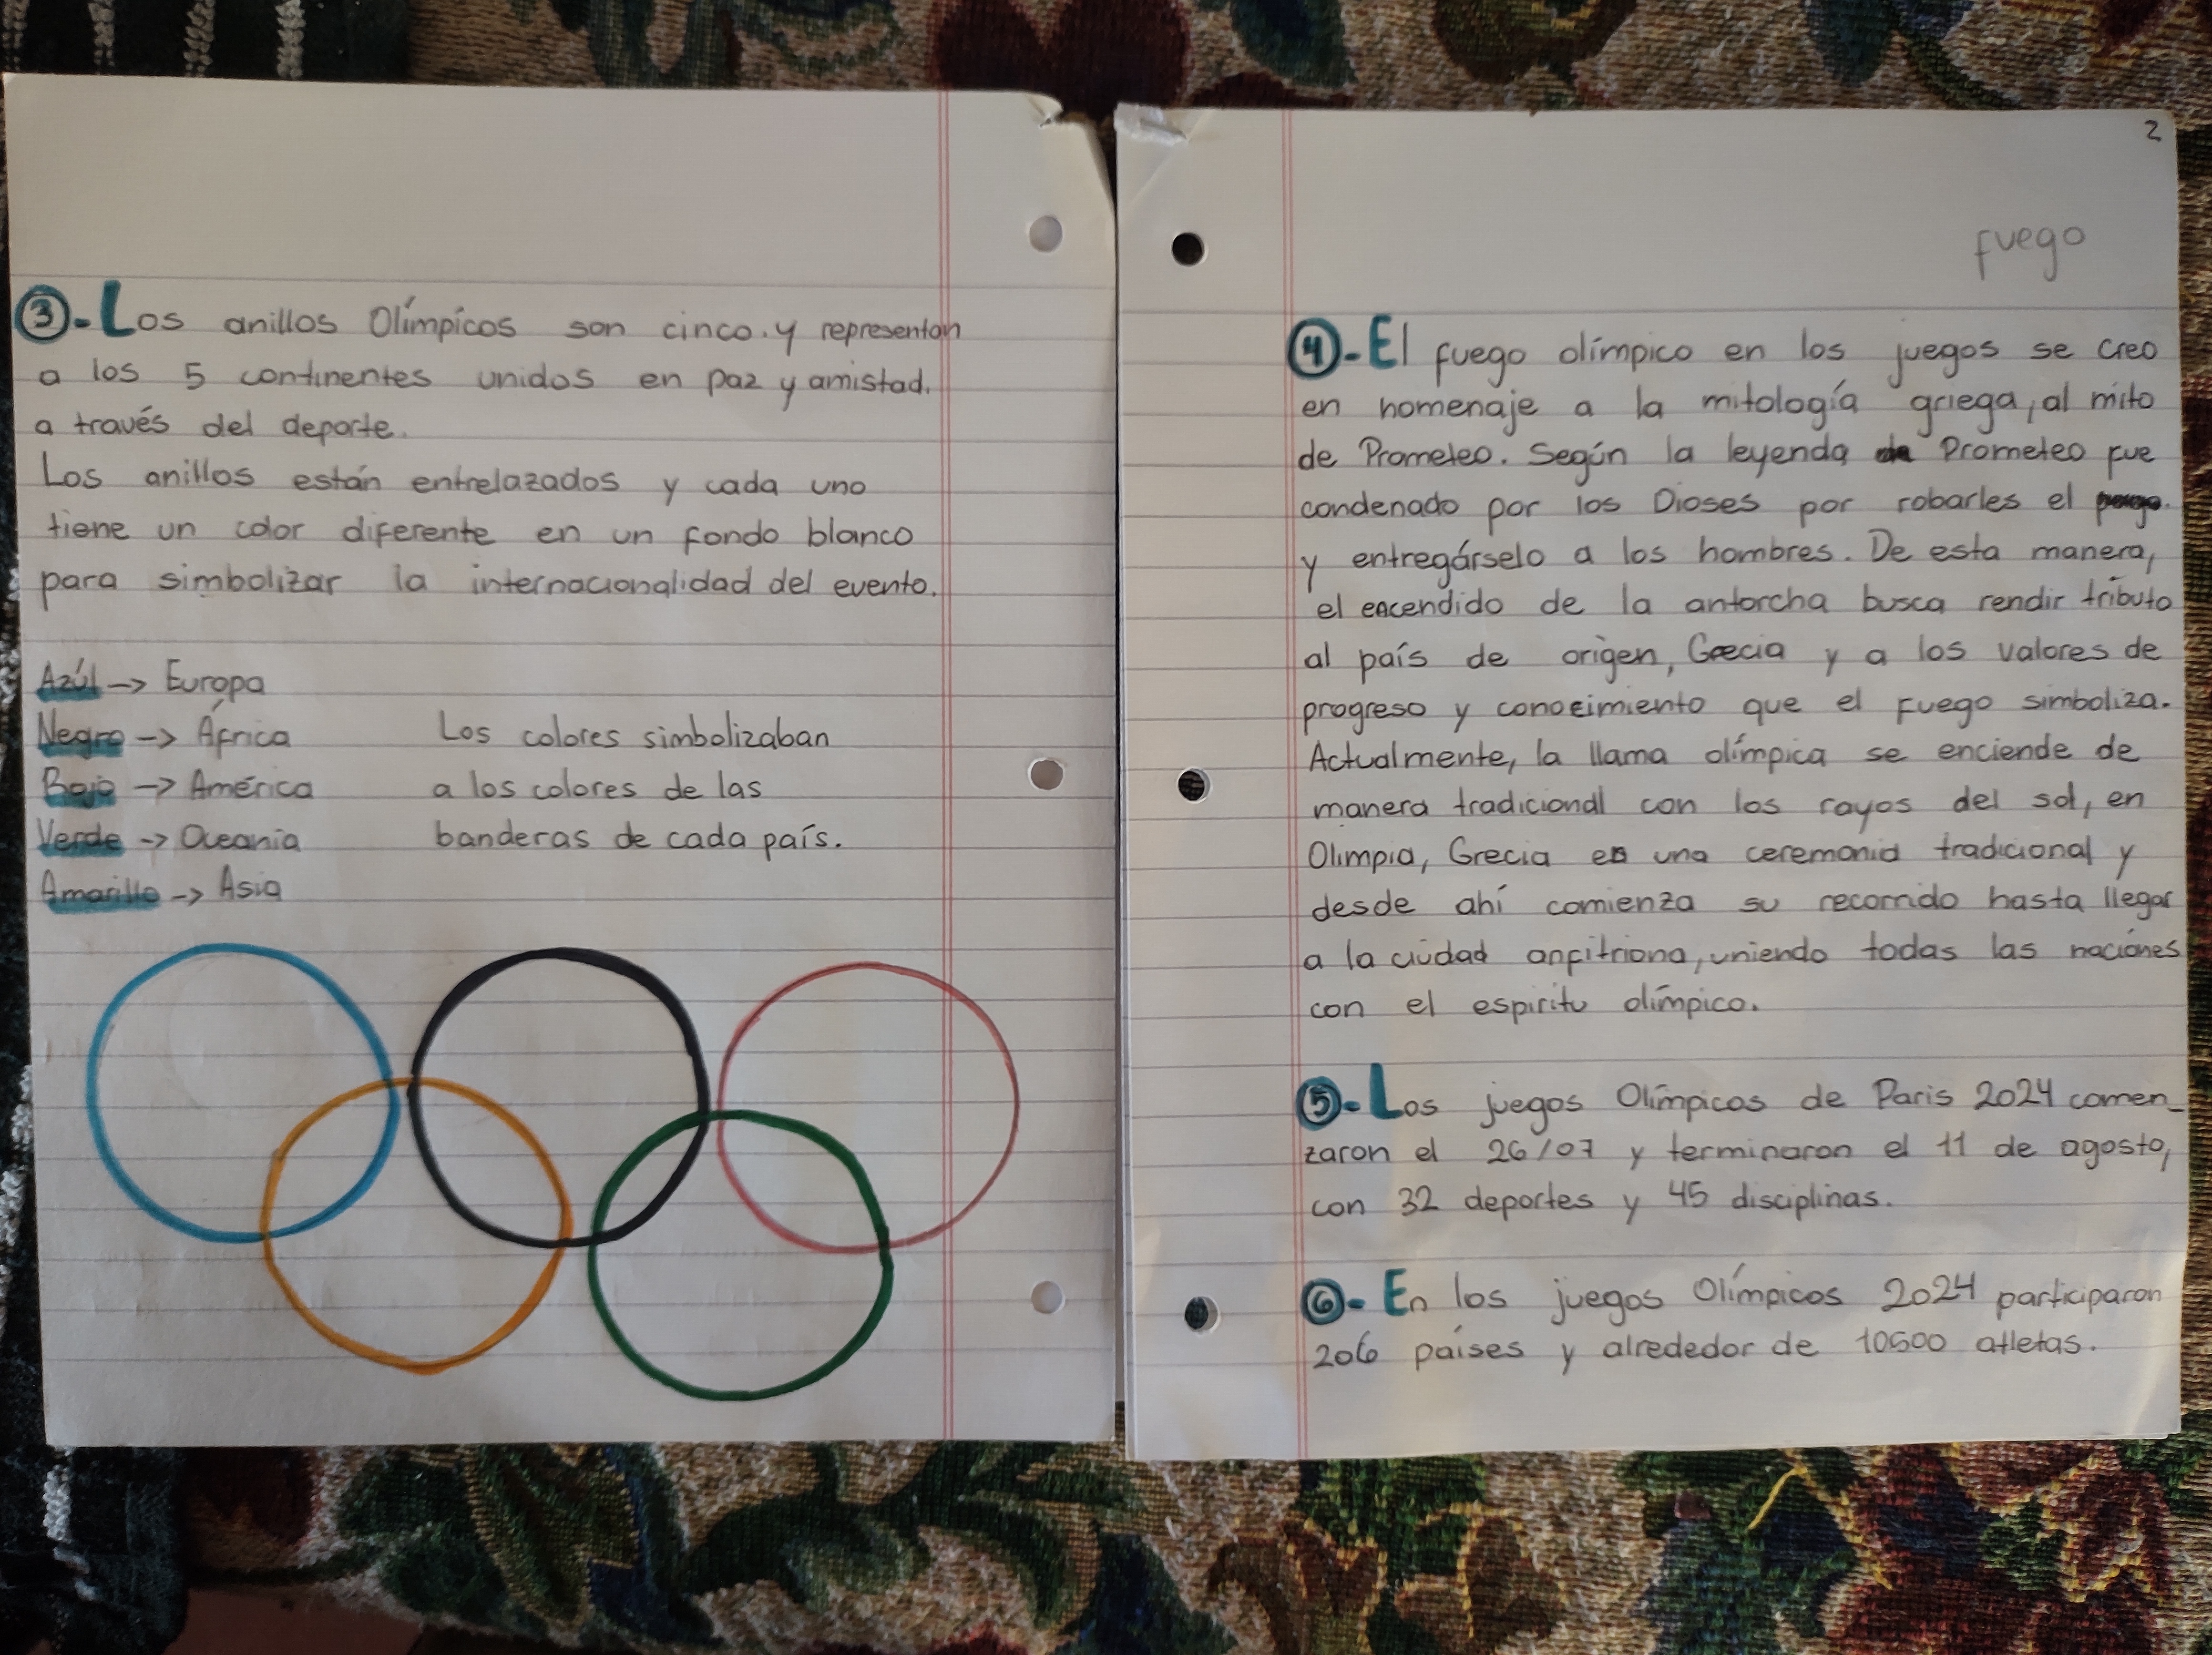 ③-Los anillos Olímpicos son cinco.y representan
a los 5 continentes unidos en paz y amistad.
a través del deporte.
Los anillos están entrelazados y cada uno
tiene un color diferente en un fondo blanco
para simbolizar la internacionalidad del evento.
Azúl -> Europa
Negro -> África
Rojo -> América
Verde -> Oceania
Amarillo -> Asia
Los colores simbolizaban
a los colores de las
banderas de cada país.
2
fuego
④-El fuego olímpico en los juegos se creo
en homenaje a la mitología griega, al mito
de Prometeo. Según la leyenda Prometeo fue
condenado por los Dioses por robarles el
y entregárselo a los hombres. De esta manera,
el encendido de la antorcha busca rendir tributo
al país de origen, Grecia y a los valores de
progreso y conocimiento que el fuego simboliza.
Actualmente, la llama olímpica se enciende de
manera tradicional con los rayos del sol, en
Olimpia, Grecia en una ceremonia tradicional y
desde ahí comienza su recorrido hasta llegar
a la ciudad anfitriona, uniendo todas las naciónes
con el espiritu olímpico.
⑤-Los juegos Olímpicos de Paris 2024 comen-
zaron el 26/07 y terminaron el 11 de agosto,
con 32 deportes y 45 disciplinas.
⑥-En los juegos Olímpicos 2024 participaron
206 países y alrededor de 10500 atletas.